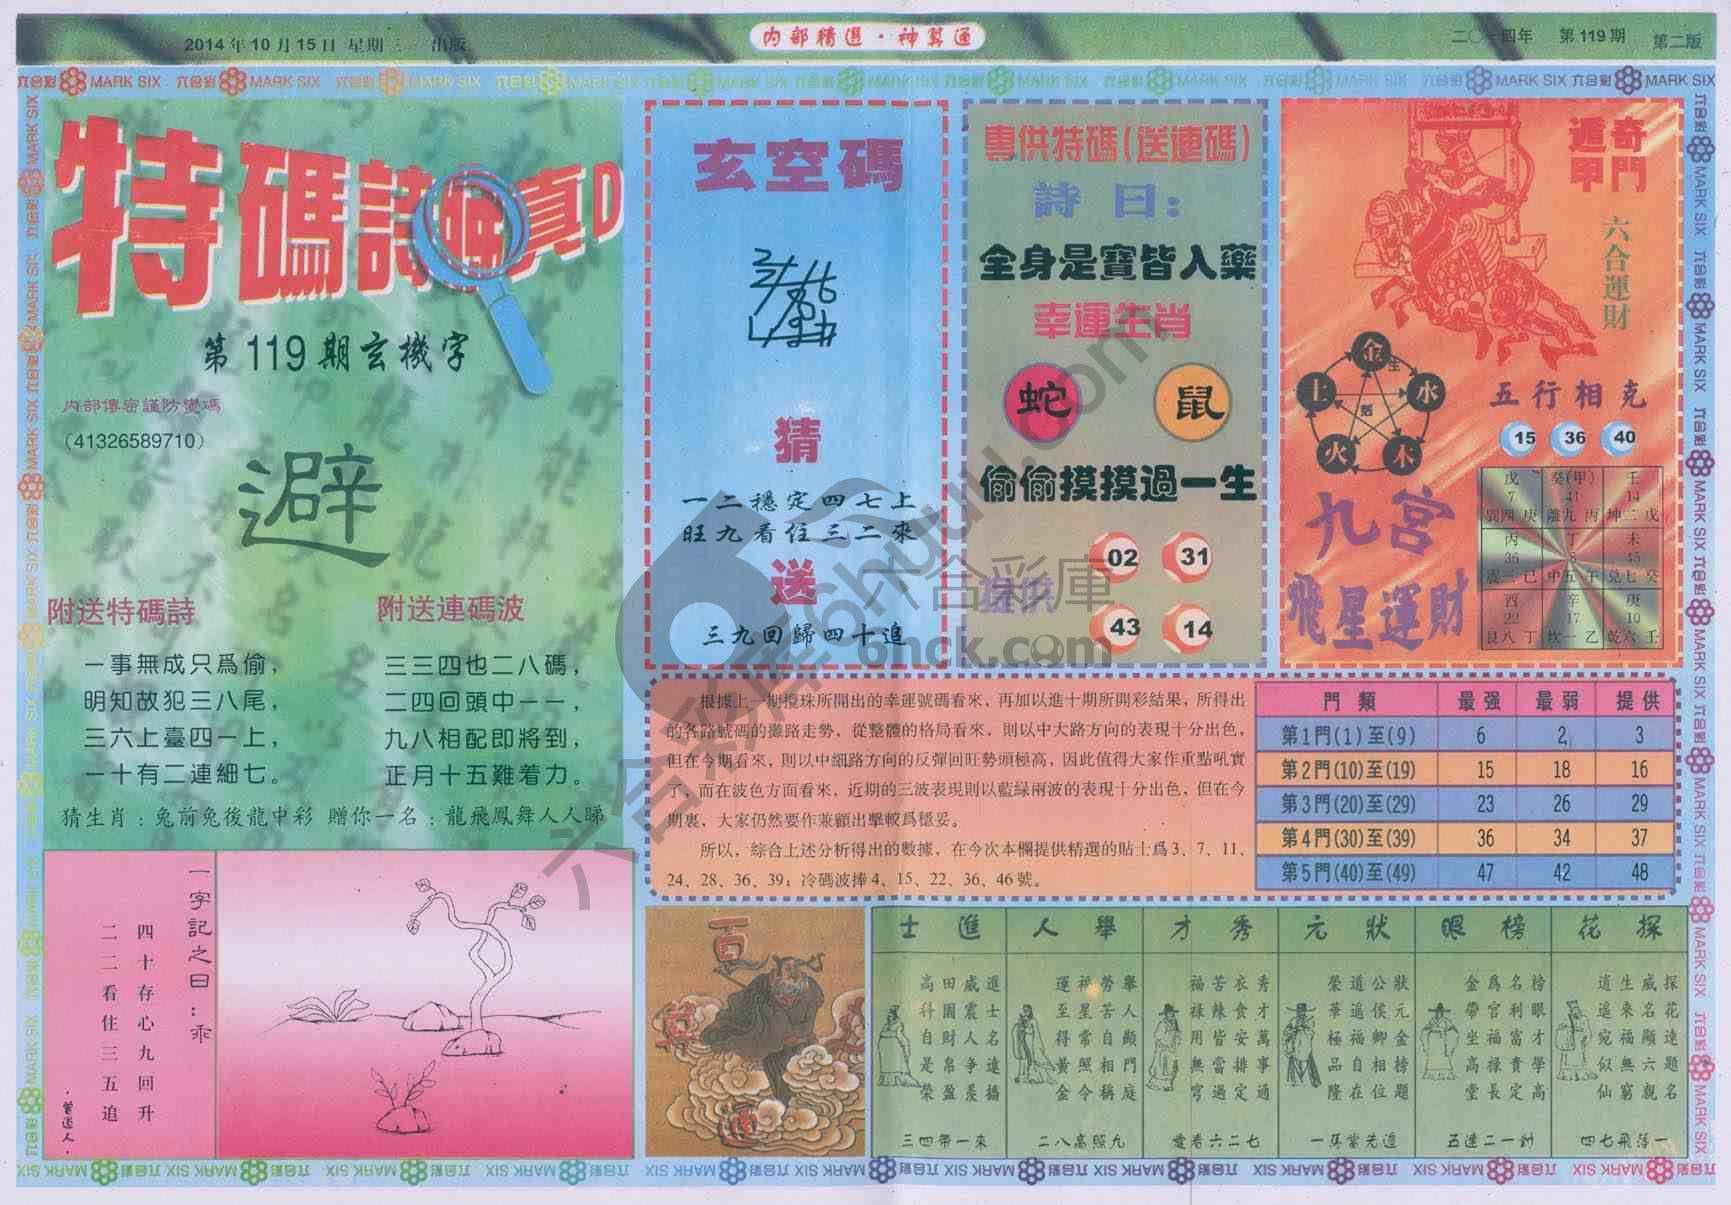 2014年10月15日 星期三 出版
内部精選·神算通
二〇一四年 第119期 第二版
六合彩 MARK SIX
特碼詩
真D
第119期玄機字
内部傳密謹防變碼
(41326589710)
避
附送特碼詩
一事無成只爲偷，
明知故犯三八尾，
三六上臺四一上，
一十有二連細七。
附送連碼波
三三四也二八碼，
二四回頭中一一，
九八相配即將到，
正月十五難着力。
猜生肖：兔前兔後龍中彩 贈你一名：龍飛鳳舞人人睇
一字記之曰：乖
四十存心九回升
二二看住三五追
·曾道人·
玄空碼
猜
一二穩定四七上
旺九看住三二來
送
三九回歸四十追
專供特碼(送連碼)
詩曰:
全身是寶皆入藥
幸運生肖
蛇 鼠
偷偷摸摸過一生
提供
02 31
43 14
奇門遁甲
六合運財
金 水 木 火 土
生
五行相克
15 36 40
九宮
飛星運財
戊 癸(甲) 壬
7 41 14
巽四庚 離九丙 坤二戊
丙 丁 未
36 8 45
震三己 中五午 兌七癸
酉 辛 庚
22 17 10
艮八丁 坎一乙 乾六壬
根據上一期攪珠所開出的幸運號碼看來，再加以進十期所開彩結果，所得出
的各路號碼的攤路走勢，從整體的格局看來，則以中大路方向的表現十分出色，
但在今期看來，則以中細路方向的反彈回旺勢頭極高，因此值得大家作重點吼實
了，而在波色方面看來，近期的三波表現則以藍綠兩波的表現十分出色，但在今
期裏，大家仍然要作兼顧出擊較爲穩妥。
所以，綜合上述分析得出的數據，在今次本欄提供精選的貼士爲3、7、11、
24、28、36、39；冷碼波捧4、15、22、36、46號。
門類 最强 最弱 提供
第1門(1)至(9) 6 2 3
第2門(10)至(19) 15 18 16
第3門(20)至(29) 23 26 29
第4門(30)至(39) 36 34 37
第5門(40)至(49) 47 42 48
百
探花
探花遠題名
威名顯六親
生來福無窮
逍遥宛似仙
四七飛落一
榜眼
榜眼才學高
名利富貴定
爲官福禄長
金帶坐高堂
狀元
狀元金榜題
公侯卿相位
道遥福自在
榮華極品隆
秀才
秀才萬事通
衣食安排定
苦辣皆當過
福禄用無窮
舉人
舉人顯門庭
勞苦自相稱
福星常照令
運至得黄金
二八高照九
進士
進士名遠播
威震人争羨
田園財帛盈
高科自是榮
三四帶一來
六合彩庫 6hck.com
六合彩库 6htuku.com